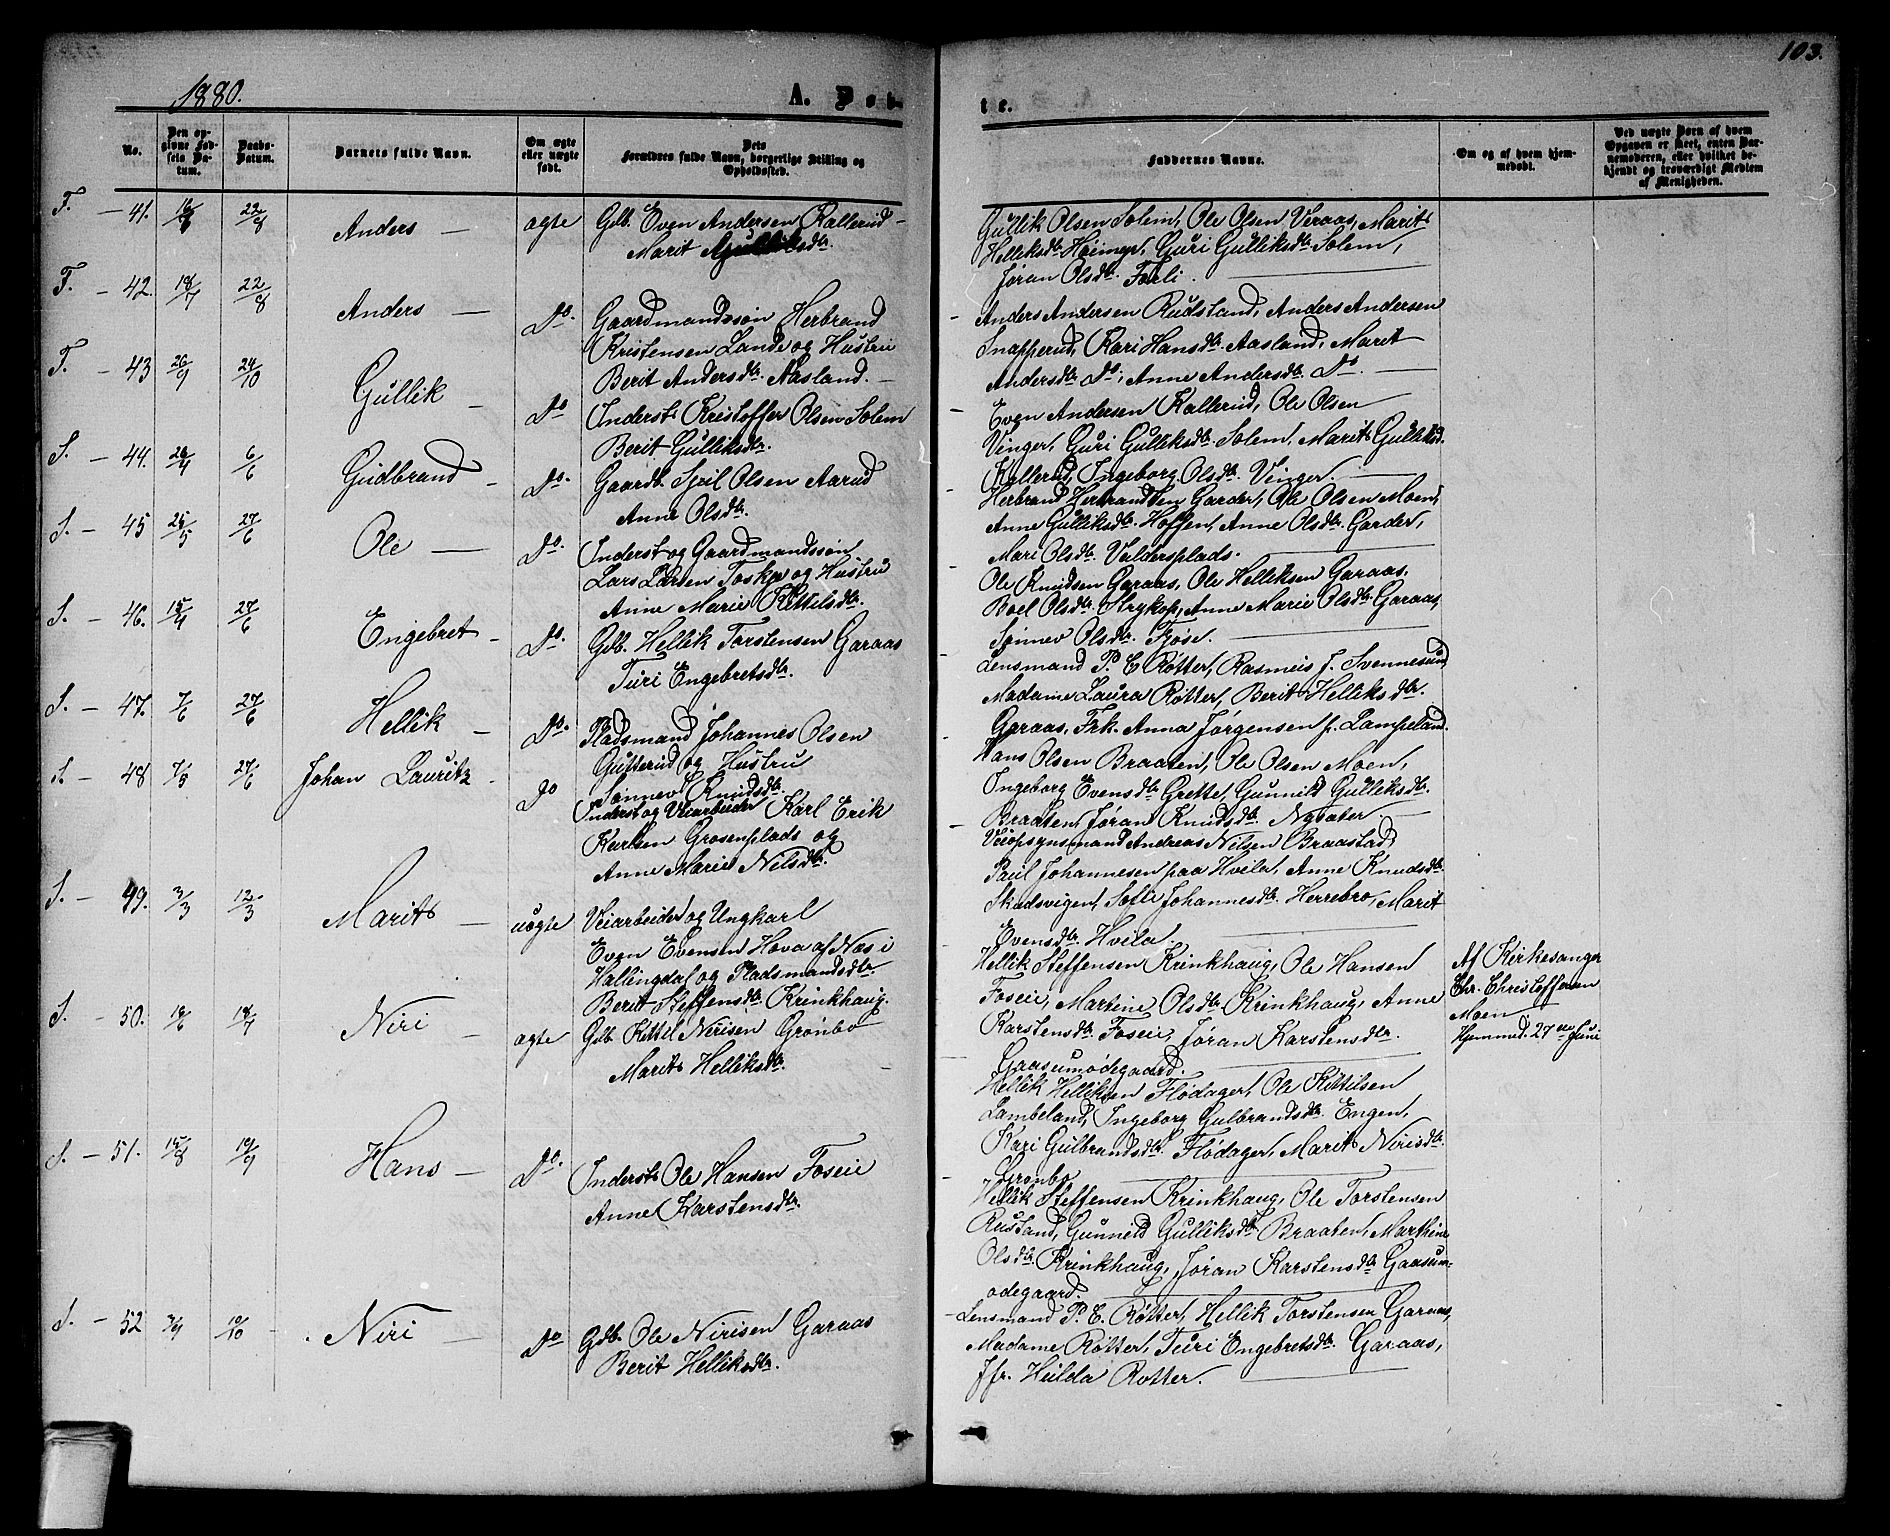 1880.
A. Døb-
te.
103.
No.
Den op-
givne Fød-
sels Da-
tum.
Daabs-
Datum.
Barnets fulde Navn.
Om ægte
eller uægte
født.
Dets
Forældres fulde Navn, borgerlige Stilling og
Opholdssted.
Faddernes Navne.
Om og af hvem hjem-
medøbt.
Ved uægte Børn af hvem
Opgaven er skeet, enten Bar-
nemoderen, eller hvilket be-
kjendt og troværdigt Medlem
af Menigheden.
F. — 41. 22/8 Anders — ægte
Gdb. Even Andersen Kallerud
Marit Gulliksdtr.
Gullik Olsen Solem, Ole Olsen Veraas, Marit
Helliksdtr. Høimyr, Guri Gulliksdtr. Solem,
Jøran Olsdtr. Forli.
F. — 42. 18/7 22/8 Anders — Do.
Gaardmandssøn Herbrand
Kristensen Lande og Hustru
Berit Andersdtr. Aasland.
Anders Andersen Rudstand, Anders Andersen
Snapperud, Kari Hansdtr. Aasland, Marit
Andersdtr. Do, Anne Andersdtr. Do.
F. — 43 26/9 24/10 Gullik — Do
Inderst Kristoffer Olsen Solem
Berit Gulliksdtr.
Even Andersen Kallerud, Ole Olsen
Vinger, Guri Gulliksdtr. Solem, Marit Gulliksd.
Kallerud, Ingeborg Olsdtr. Vinger.
S. — 44. 6/6 Gudbrand — Do.
Gaardb. Sjul Olsen Aarud
Anne Olsdtr.
Herbrand Herbrandsen Garder, Ole Olsen Moen,
Anne Gulliksdtr. Hoffen, Anne Olsdtr. Garder,
Mari Olsdtr. Valdersplads.
S. — 45 25/5 27/6 Ole — Do.
Inderst og Gaardmandssøn
Lars Larsen Toskje og Hustru
Anne Marie Kittilsdtr.
Ole Knudsen Garaas, Ole Helliksen Garaas,
Boel Olsdtr. Strykop, Anne Marie Olsdtr. Garaas,
Sønnev Olsdtr. Fjøse.
S. — 46. 15/4 27/6 Engebret — Do.
Gdb. Hellik Torstensen Garaas
Turi Engebretsdtr.
Lensmand P. C. Røtter, Rasmus J. Svennesund
Madame Laura Røtter, Berit Helliksdtr.
Garaas, Frk. Anna Jørgensen p. Lampeland.
S. — 47. 7/6 27/6 Hellik — Do.
Pladsmand Johannes Olsen
Gutterud og Hustru
Sønnev Knudsdtr.
Hans Olsen Braaten, Ole Olsen Moen,
Ingeborg Evensdtr. Grette, Gunnild Gulliksdtr.
Braaten, Jøran Knudsdtr. Nysater.
S. — 48 7/5 27/6 Johan Lauritz — Do
Inderst og Veiarbeider Karl Erik
Karlsen Grosenplads og
Anne Marie Nilsdtr.
Veiopsynsmand Andreas Nilsen Braastad,
Paul Johannesen paa Hvila, Anne Knudsdtr.
Skadsvigen, Sofie Johannesdtr. Herrebro, Marit
Evensdtr. Hvila.
S. — 49. 3/3 12/3 Marit — uægte
Veiarbeider og Ungkarl
Even Evensen Hova af Næs i
Hallingdal og Pladsmandsdtr.
Berit Steffensdtr. Krinkhaug.
Hellik Steffensen Krinkhaug, Ole Hansen
Foseie, Martine Olsdtr. Krinkhaug, Anne
Karstensdtr. Foseie, Jøran Karstensdtr.
Gaasumødegaard.
Af Kirkesanger
Chr. Christoffersen
Moen.
Hjemmed. 27de Juni
S. — 50. 18/7 Niri — ægte
Gdb. Kittel Nirisen Grønbo
Marit Helliksdtr.
Hellik Helliksen Flodager, Ole Kittilsen
Lambeland, Ingeborg Gulbrandsdtr. Engen,
Kari Gulbrandsdtr. Flodager, Marit Nirisdtr.
Grønbo
S. — 51. 15/8 19/9 Hans — Do.
Inderst Ole Hansen Foseie
Anne Karstensdtr.
Hellik Steffensen Krinkhaug, Ole Torstensen
Rustand, Gunneid Gulliksdtr. Braaten, Marthine
Olsdtr. Krinkhaug, Jøran Karstensdtr. Gaasum-
ødegaard.
S. — 52 10/10 Niri — Do
Gdb. Ole Nirisen Garaas
Berit Helliksdtr.
Lensmand P. C. Røtter, Hellik Torstensen Garaas,
Madame Røtter, Turi Engebretsdtr. Garaas,
Jfr. Hulda Rotter.